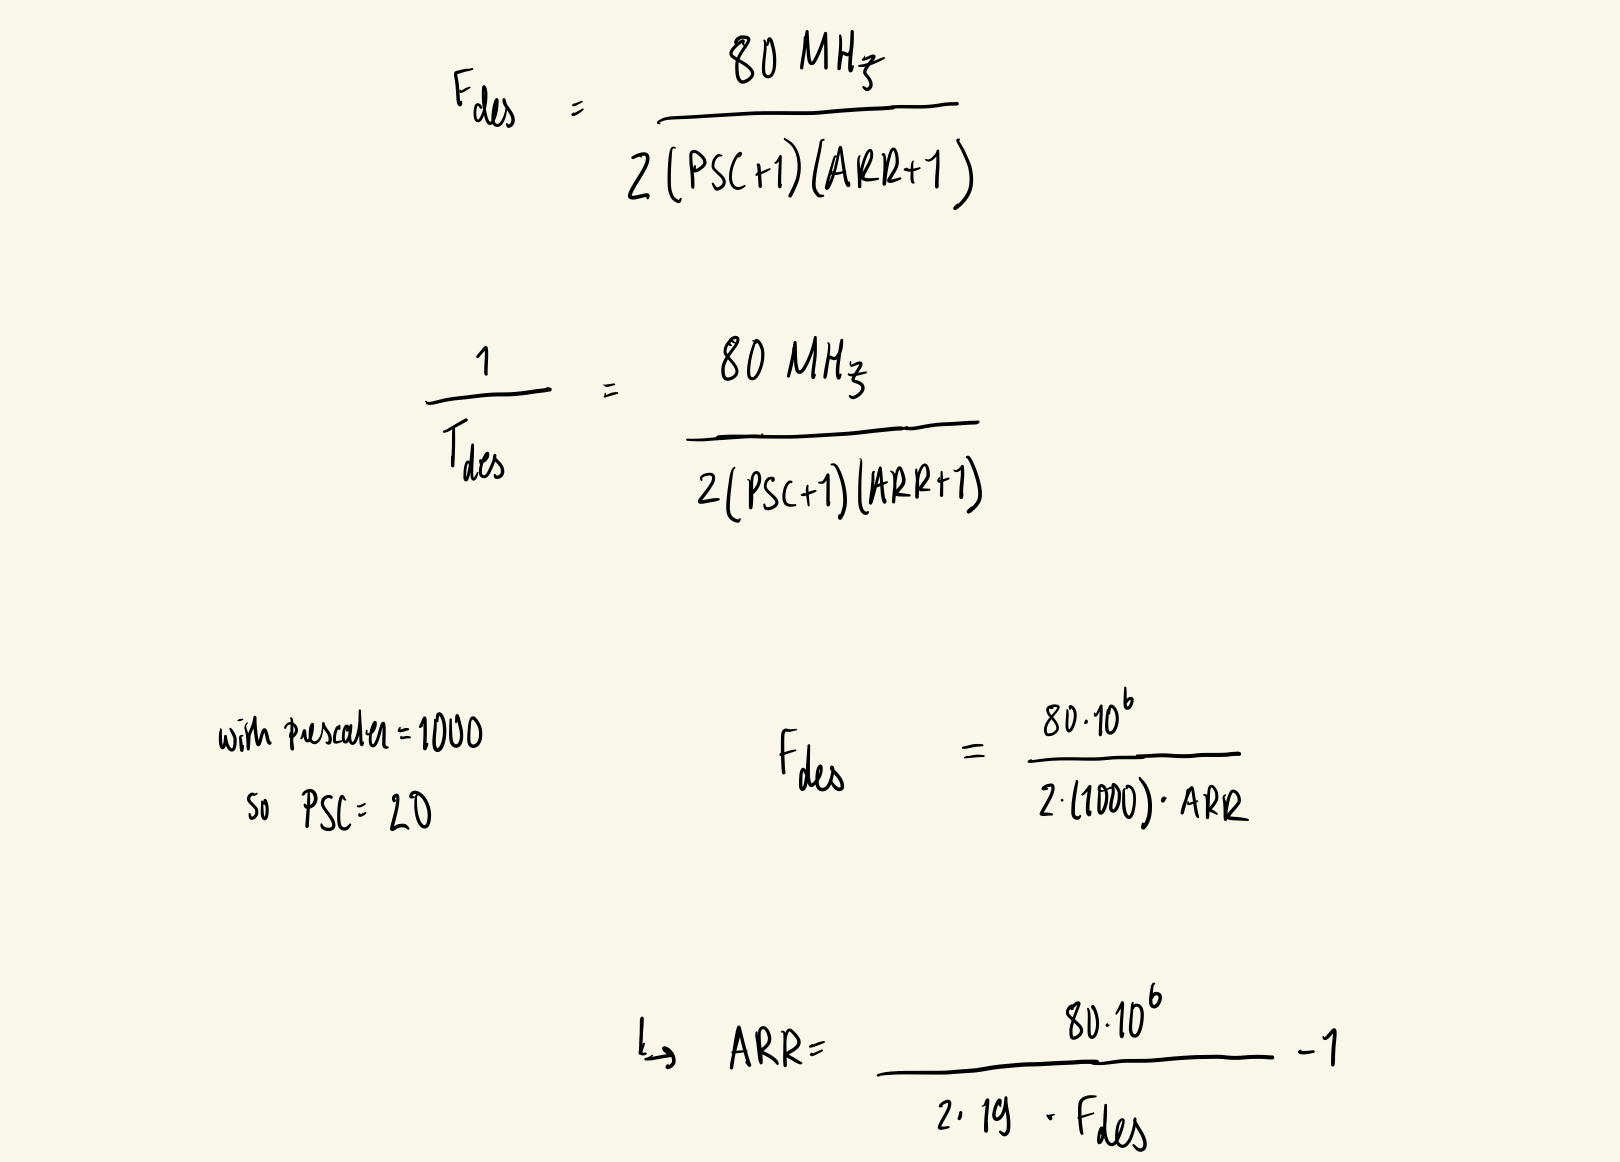 F_des = 80 MHz / 2(PSC+1)(ARR+1)
1 / T_des = 80 MHz / 2(PSC+1)(ARR+1)
with prescaler = 1000
so PSC = 20
F_des = 80·10^6 / 2·(1000)·ARR
↳ ARR = 80·10^6 / 2·19·F_des - 1